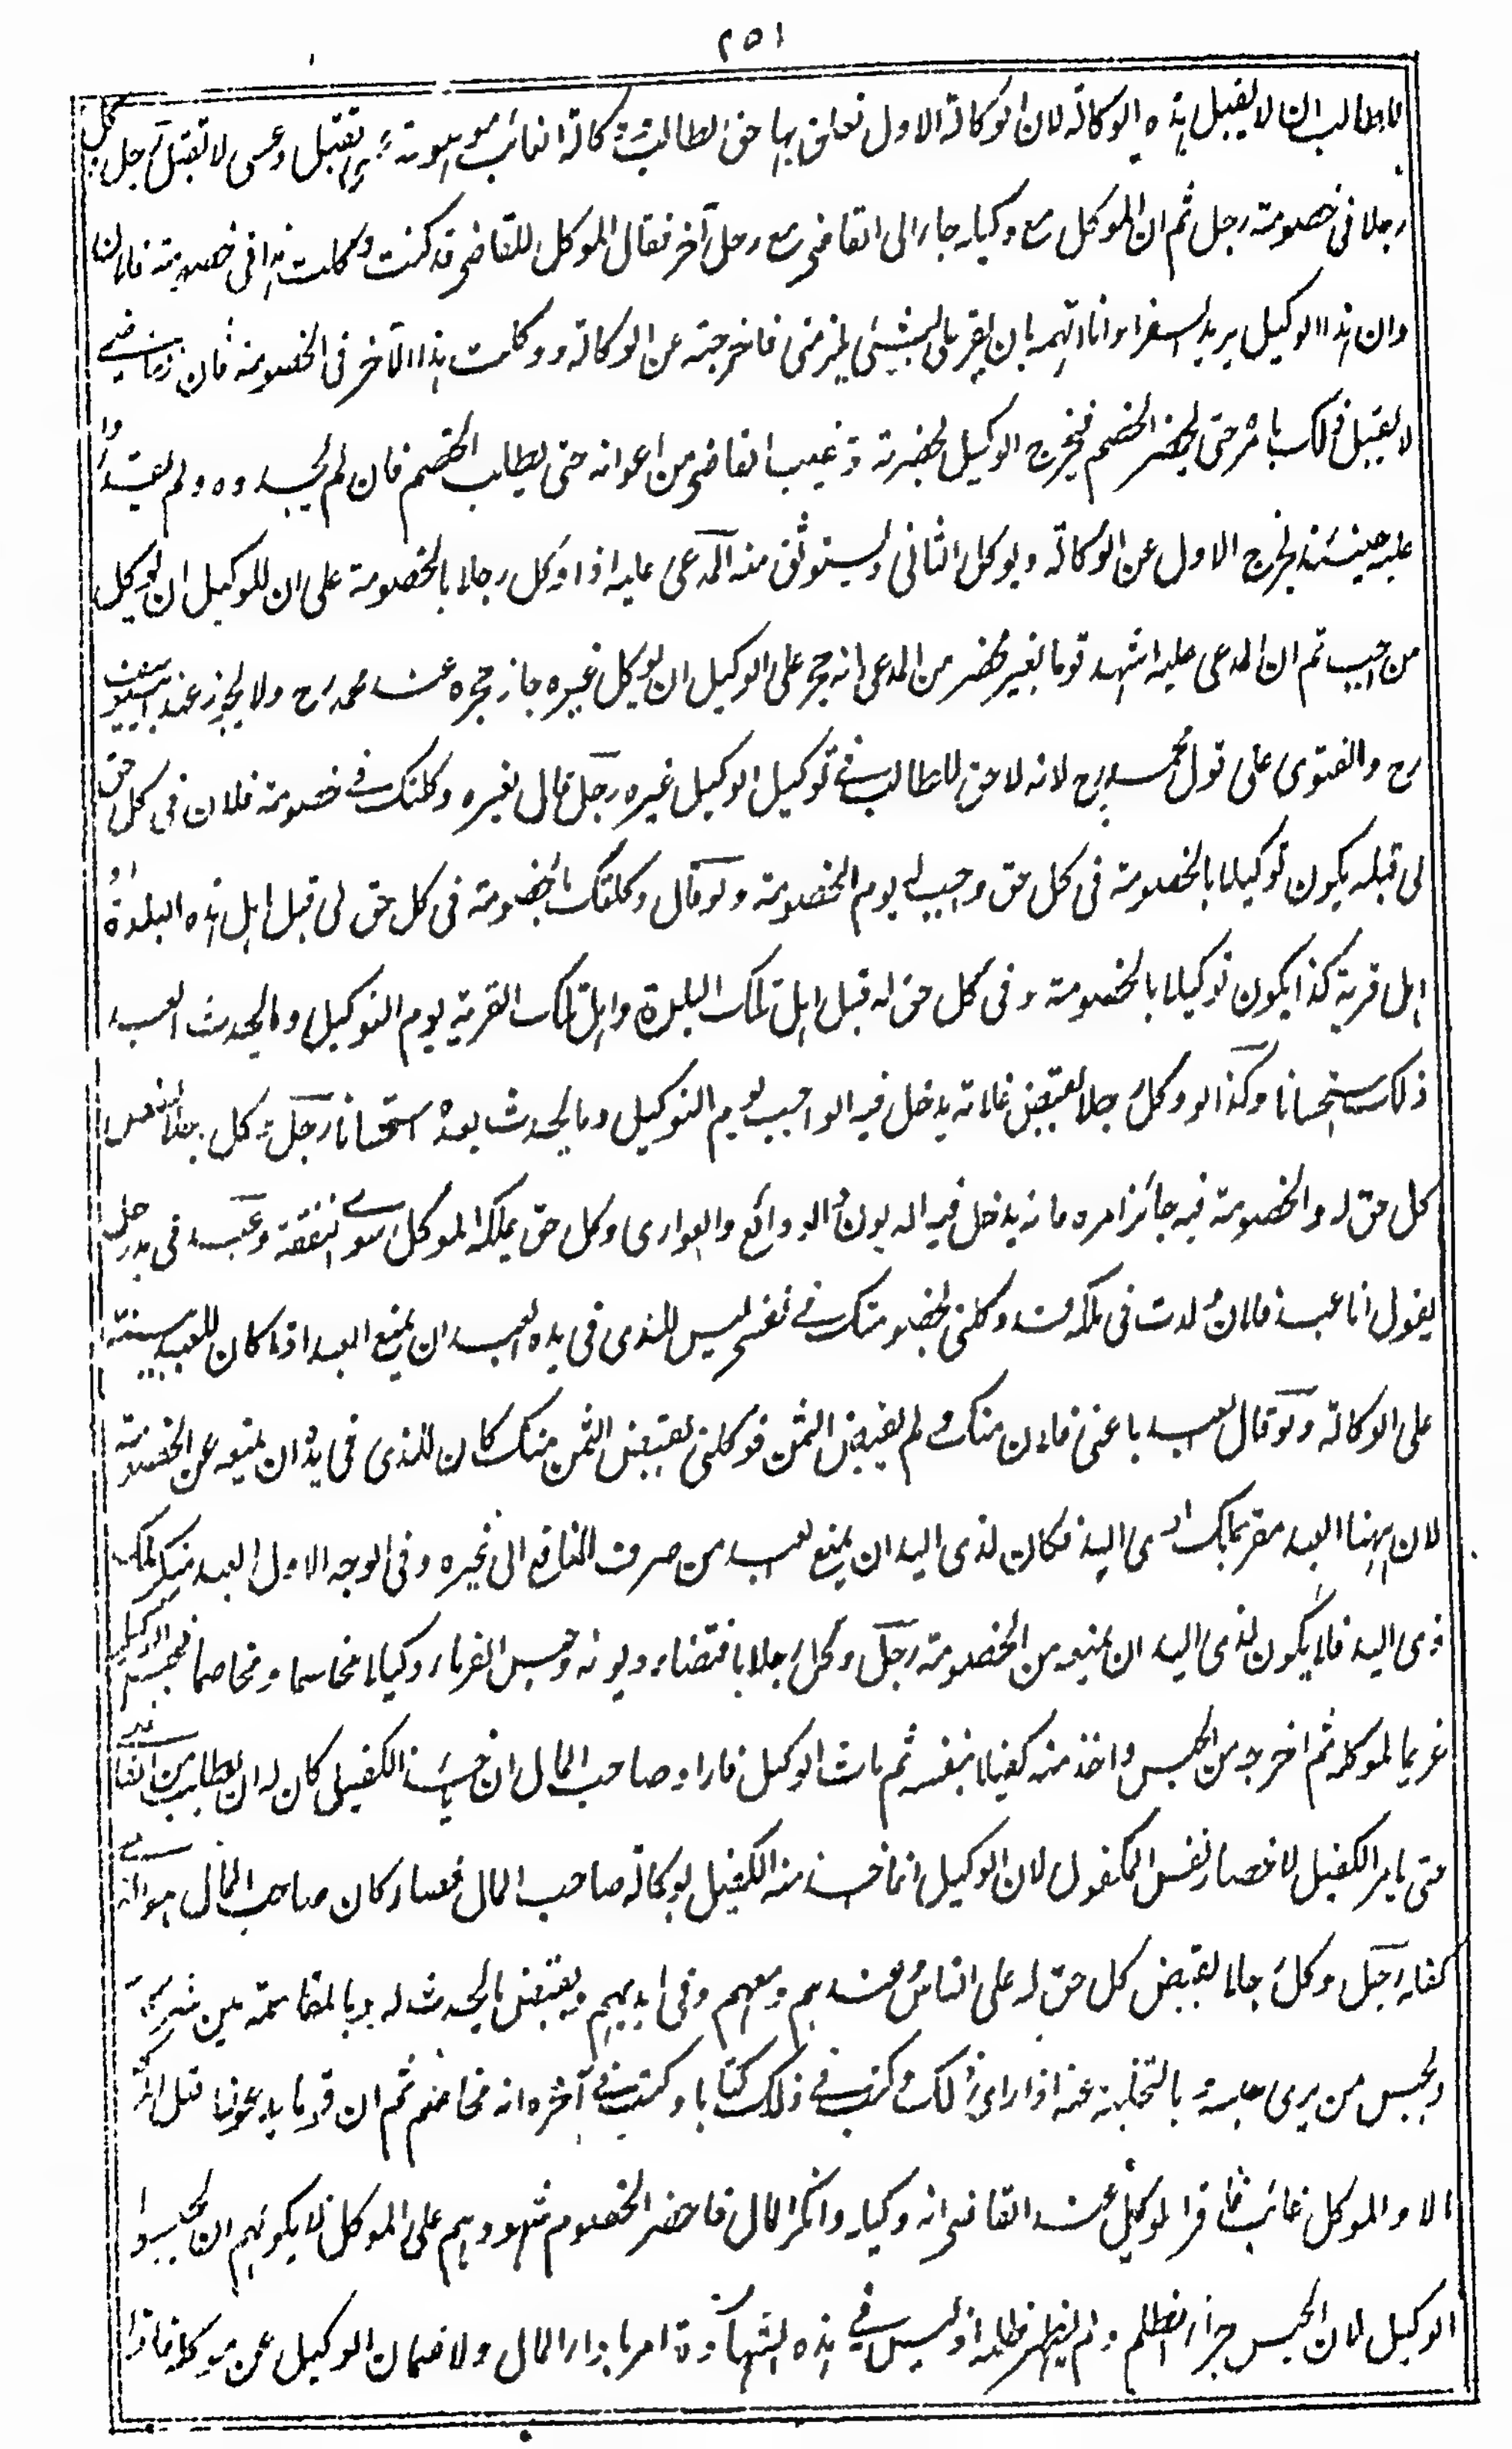 ٢٥١
للطالب ان لا يقبل هذه الوكالة لان الوكالة الاول تعلق بها حق الطالب ووكالة الغائب موهومة عسى تقبل وعسى لا تقبل رجل وكل
رجلا فى خصومة رجل ثم ان الموكل مع وكيله جاء الى القاضى مع رجل آخر فقال الموكل للقاضى قد كنت وكلت هذا فى خصومة فلان
وان هذا الوكيل يريد السفر او انا اتهمه بان يقر على بشئ يلزمنى فاخرجته عن الوكالة ووكلت هذا الآخر فى الخصومة فان القاضى
لا يقبل ذلك بامره حتى يحضر الخصم فيخرج الوكيل بحضرته و القاضى من اعوانه حتى يطلب الخصم فان لم يجدوه ولم يقدروا
عليه حينئذ يخرج الاول عن الوكالة ويوكل الثانى ويستوثق منه المدعى عليه اذا وكل رجلا بالخصومة على ان للوكيل ان يوكل
من احب ثم ان المدعى عليه اشهد قوما بغير محضر من المدعى انه حجر على الوكيل ان يوكل غيره جاز حجره عند محمد رح ولا يجوز عند ابى يوسف
رح والفتوى على قول محمد رح لانه لا حق للطالب فى توكيل الوكيل غيره رجل قال لغيره وكلتك فى خصومة فلان فى كل حق
لى قبله يكون توكيلا بالخصومة فى كل حق وجب له يوم الخصومة ولو قال وكلتك بالخصومة فى كل حق لى قبل اهل هذه البلدة او
اهل قرية كذا يكون توكيلا بالخصومة وفى كل حق له قبل اهل تلك البلدة واهل تلك القرية يوم التوكيل وما يحدث بعد
ذلك استحسانا وكذا لو وكل رجلا بقبض غلاته يدخل فيه الواجب يوم التوكيل وما يحدث بعده استحسانا رجل وكل رجلا بقبض
كل حق له والخصومة فيه جائز امره فانه يدخل فيه الديون والودائع والعوارى وكل حق يملكه الموكل سوى النفقة وعبد فى يد رجل
يقول انا عبد فلان ولدت فى ملكه وقد وكلنى بخصومتك فى نفسى ليس للذى فى يده العبد ان يمنع العبد اذا كان للعبد بينة
على الوكالة ولو قال العبد باعنى فلان منك ولم يقبض الثمن فوكلنى بقبض الثمن منك كان للذى فى يده ان يمنعه عن الخصومة
لان ههنا العبد مقر بملك ذى اليد فكان لذى اليد ان يمنع العبد من صرف المنافع الى غيره وفى الوجه الاول العبد منكر ملك
ذى اليد فلا يكون لذى اليد ان يمنعه من الخصومة رجل وكل رجلا باقتضاء ديونه وحبس الغرماء وكيلا مخاصما ومخاصما فحبس الوكيل
غريما لموكله ثم اخرجه من الحبس واخذ منه كفيلا بنفسه ثم مات الوكيل فاراد صاحب المال ان ياخذ الكفيل كان له ان يطلب من القاضى
حتى يامر الكفيل لاحضار نفس المكفول لان الوكيل انما اخذ منه الكفيل بوكالة صاحب المال فصار كان صاحب المال هو الذى
كفله رجل وكل رجلا بقبض كل حق له على الناس وعندهم ومعهم وفى ايديهم وبقبض ما يحدث له وبالمقاسمة بين شركائه
وبحبس من يرى حبسه وبالتخلية عنه اذا راى ذلك وكتب فى ذلك كتابا وكتب فى آخره انه مخاصم ثم ان قوما يدعون قبل الموكل
مالا والموكل غائب فاقر الوكيل عند القاضى انه وكيله وانكر المال فاحضر الخصوم شهودهم على الموكل لا يكون لهم ان يحبسوا
الوكيل لان الحبس جزاء الظلم ولم يظهر ظلمه اذ ليس فى هذه الشهادة امر باداء المال ولا ضمان الوكيل عن موكله فاذا